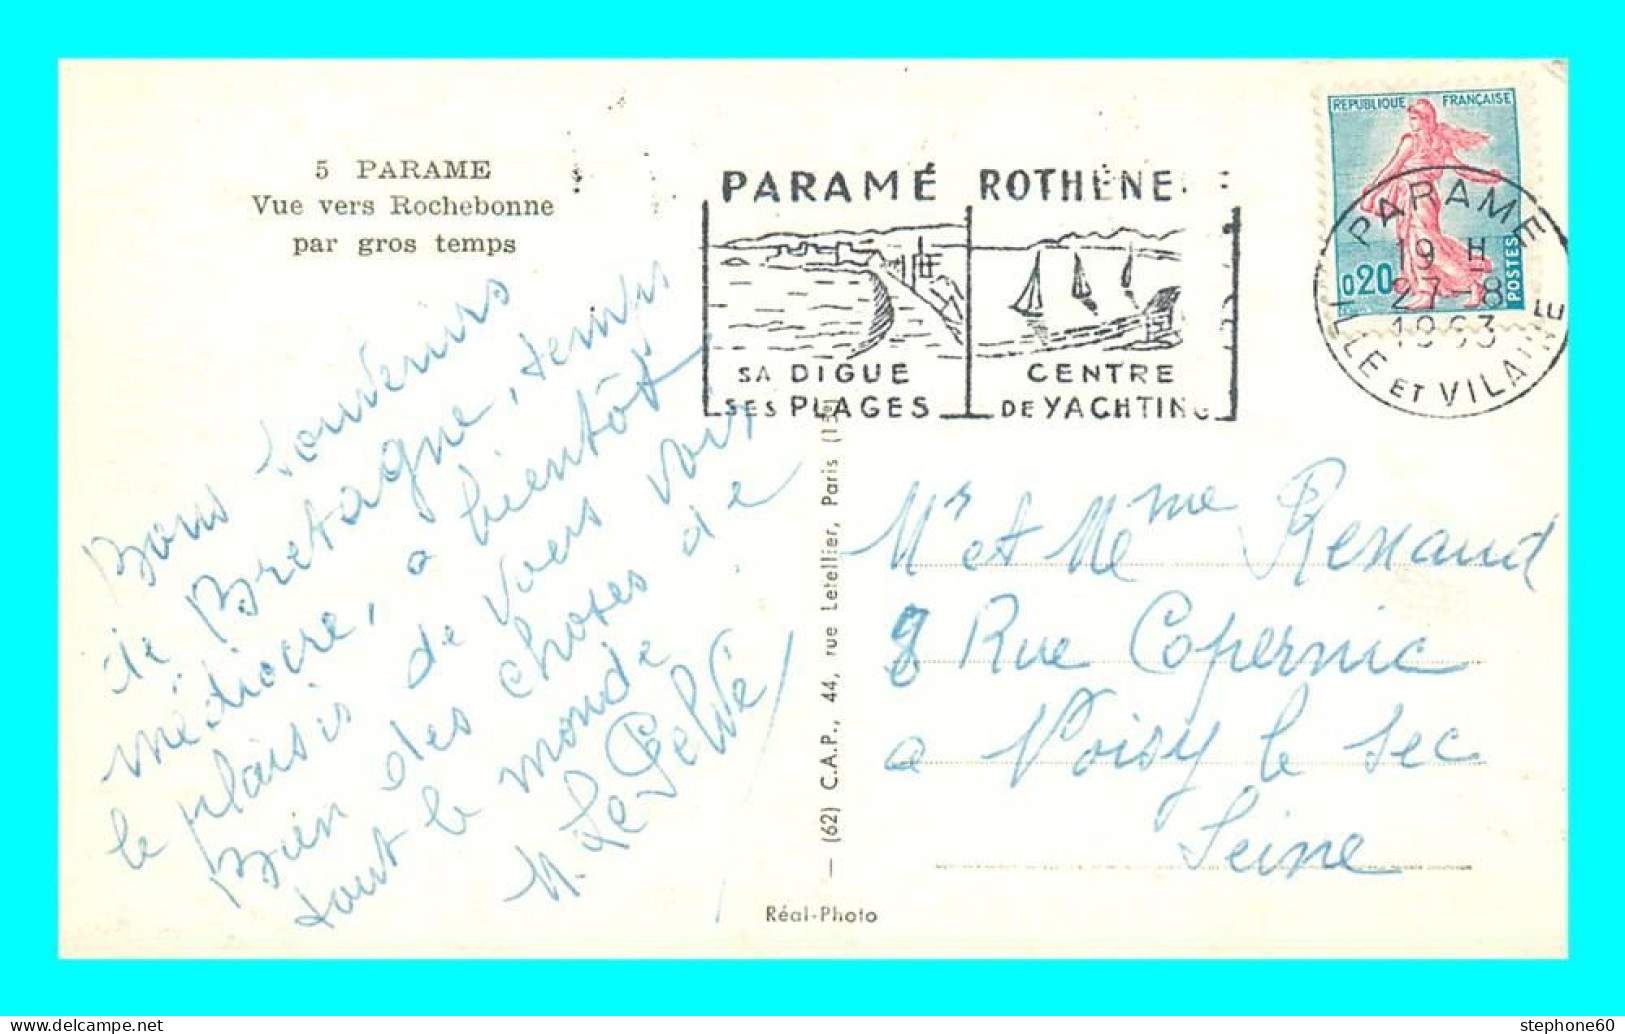 5 PARAME
Vue vers Rochebonne
par gros temps
PARAMÉ ROTHÉNE
SA DIGUE
SES PLAGES
CENTRE
DE YACHTING
REPUBLIQUE FRANÇAISE
0,20
POSTES
PARAME
19 H
27-8
1963
ILLE ET VILAINE
Bons souvenirs
de Bretagne, temps
médiocre, a bientôt
le plaisir de vous voir
Bien des choses de
tout le monde
M. Le
Mr et Mme Renaud
8 Rue Copernic
a Noisy le Sec
Seine
— (62) C.A.P., 44, rue Letellier, Paris (15e)
Réal-Photo
stephone60